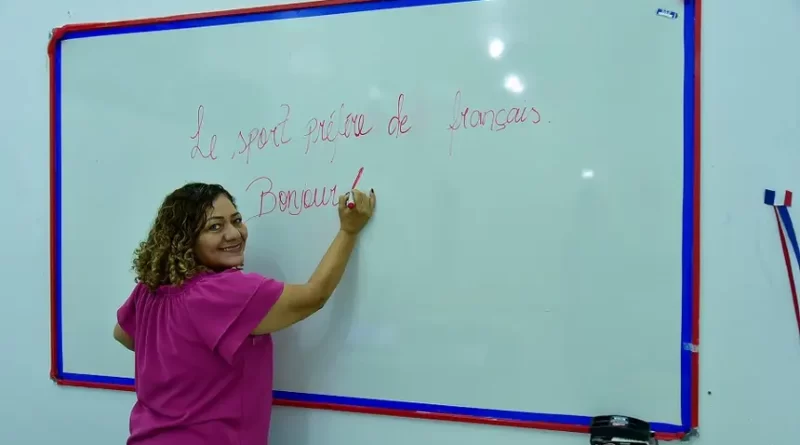 Le sport préfére de français.
Bonjour